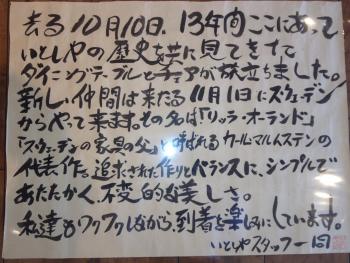 去る10月10日、13年間ここにあって
いとしやの歴史を共に見てきてた
ダイニングテーブルとチェアが旅立ちました。
新しい仲間は来たる11月1日にスウェーデン
からやって来ます。その名は「リッラ・オーランド」
「スウェーデンの家具の父」と呼ばれるカールマルムステンの
代表作。追求された作りとバランスに、シンプルで
あたたかく、不変的な美しさ。
私達もワクワクしながら、到着を楽しみにしています。
いとしやスタッフ一同